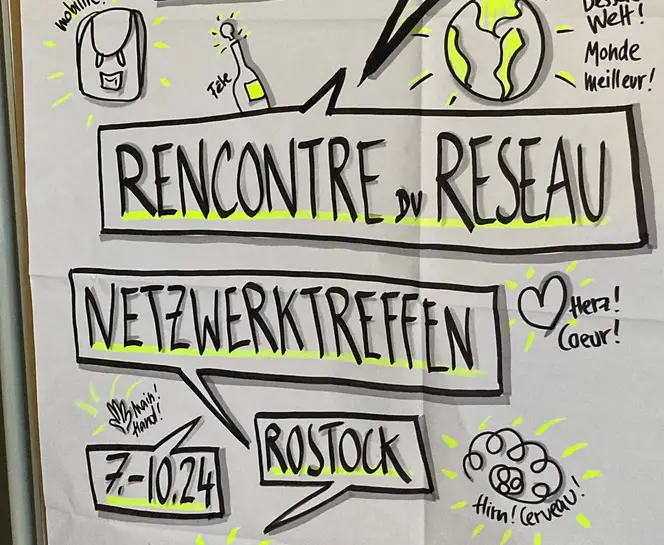 mobilité!
Welt!
Monde
meilleur!
Fete
RENCONTRE DU RESEAU
NETZWERKTREFFEN
Herz!
Coeur!
main!
Hand!
7.-10.24
ROSTOCK
Hirn! Cerveau!